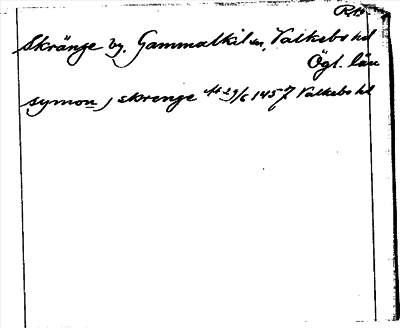 Skränge by. Gammalkil sn, Valkebo hd
Ögl. län
symon j skrenge 29/6 1457 Valkebo hd